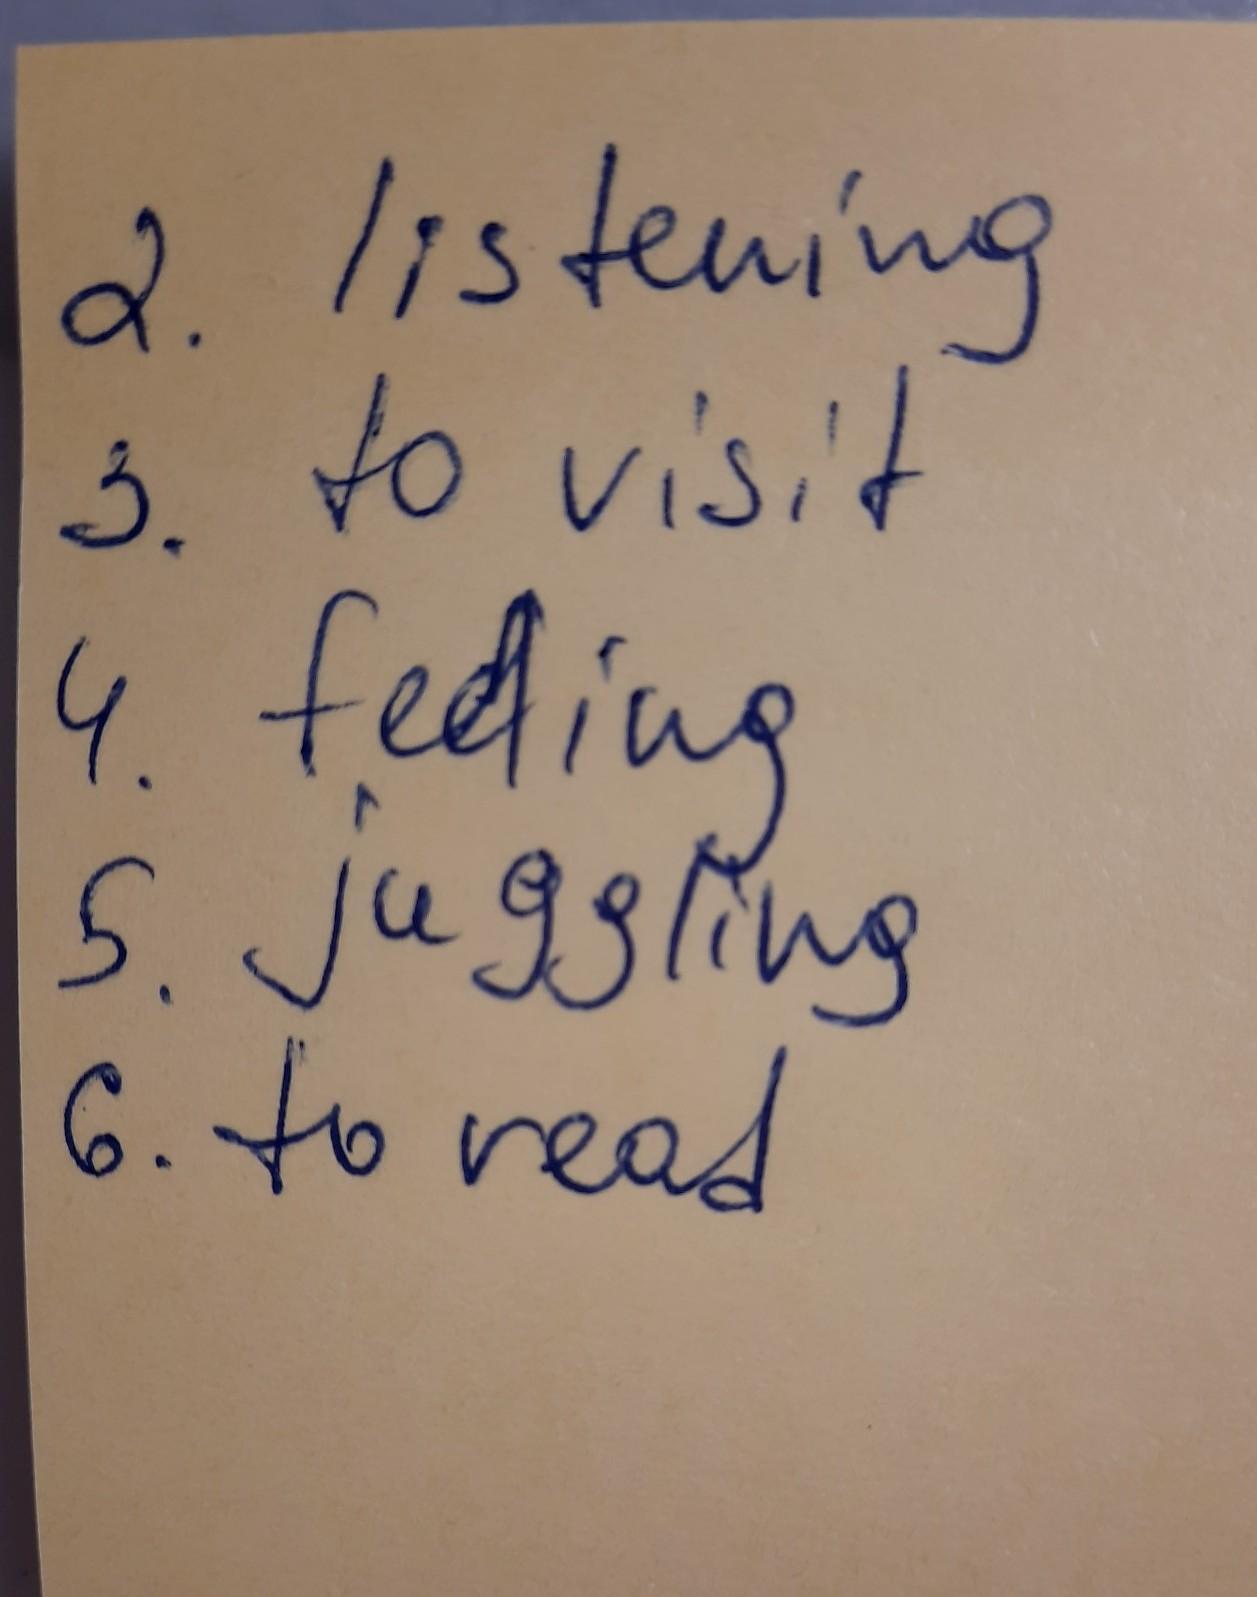 2. listening
3. to visit
4. feeling
5. juggling
6. to read